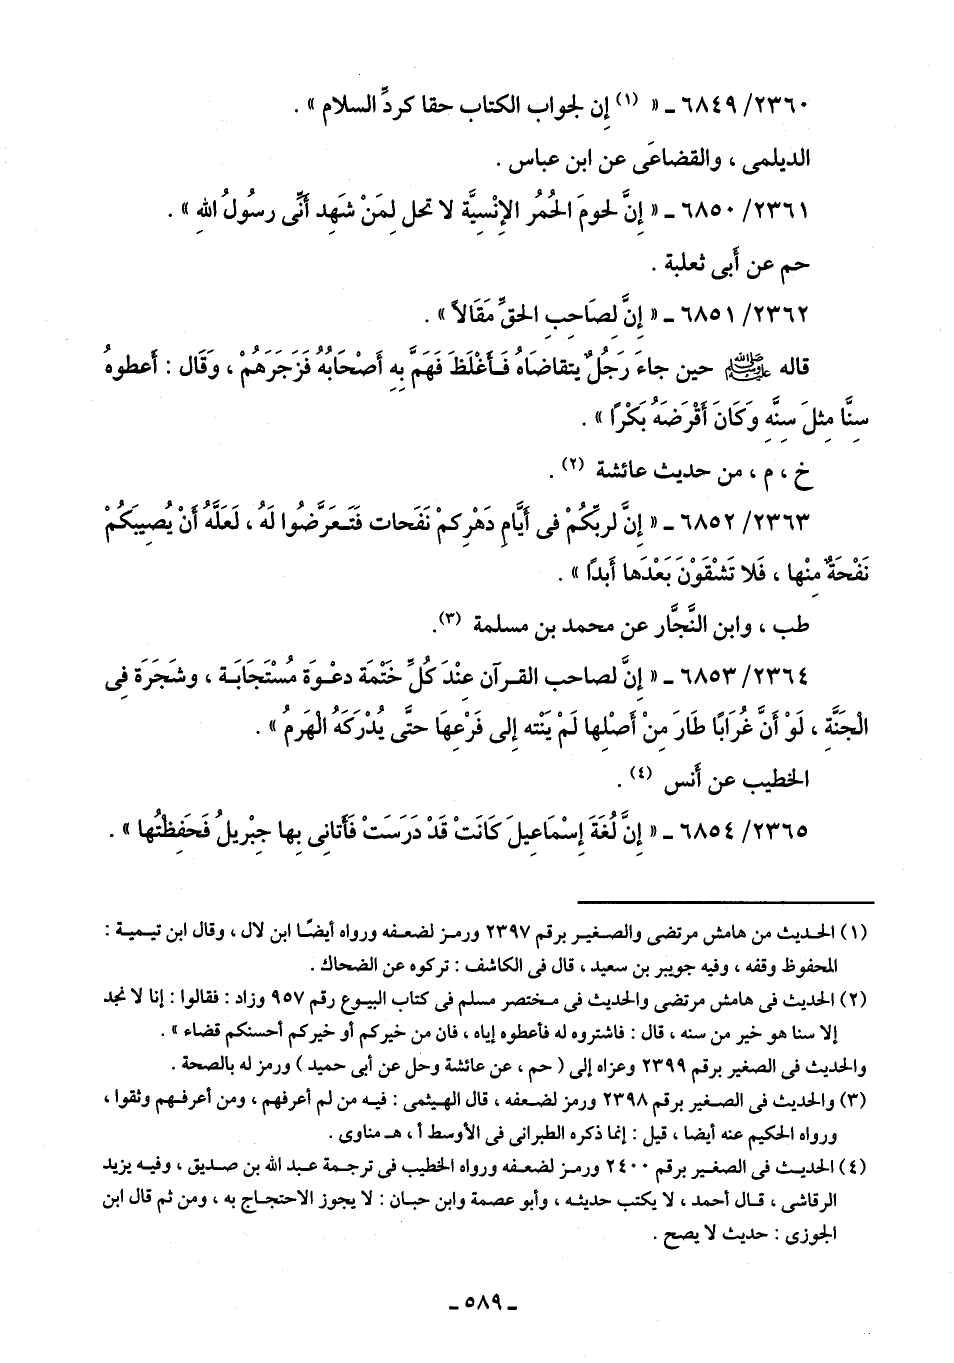 ٢٣٦٠/ ٦٨٤٩ ـ « (١) إِن لجواب الكتاب حقا كردِّ السلام » .
الديلمى ، والقضاعَى عن ابن عباس .
٢٣٦١/ ٦٨٥٠ ـ « إِنَّ لحومَ الحُمُر الإِنْسِيَّة لا تحل لِمَنْ شَهِد أَنِّى رسولُ اللهِ » .
حم عن أَبى ثعلبة .
٢٣٦٢/ ٦٨٥١ ـ « إِنَّ لصَاحِبِ الحقِّ مَقَالاً » .
قاله ﷺ حين جاءَ رَجُلٌ يتقاضَاهُ فَأَغْلَظَ فَهَمَّ بِهِ أَصْحَابُهُ فَزَجَرَهُمْ ، وَقَال : أَعطوهُ
سِنَّا مِثلَ سِنِّهِ وَكَانَ أَقْرَضَهُ بَكْرًا » .
خ ، م ، من حديث عائشة (٢) .
٢٣٦٣/ ٦٨٥٢ ـ « إِنَّ لربِّكُمْ فى أَيَّامِ دَهْرِكمْ نَفَحات فَتَعَرَّضُوا لَهُ ، لَعَلَّهُ أَنْ يُصِيبَكُمْ
نَفْحَةٌ مِنْها ، فَلا تَشْقَوْنَ بَعْدَها أَبدًا » .
طب ، وابن النَّجَّار عن محمد بن مسلمة (٣).
٢٣٦٤/ ٦٨٥٣ ـ « إِنَّ لصاحب القرآن عِنْدَ كُلِّ خَتْمَة دعْوَة مُسْتَجَابَة ، وشَجَرَة فِى
الْجَنَّةِ ، لَوْ أَنَّ غُرَابًا طَارَ مِنْ أَصْلِها لَمْ يَنْته إِلى فَرْعِهَا حتَّى يُدْرَكَهُ الْهَرمُ » .
الخطيب عن أَنس (٤) .
٢٣٦٥/ ٦٨٥٤ ـ « إِنَّ لُغَةَ إِسْمَاعِيلَ كَانَتْ قَدْ دَرَسَتْ فَأَتانِى بِها جِبْرِيلُ فَحَفِظْتُها » .
(١) الحديث من هامش مرتضى والصغير برقم ٢٣٩٧ ورمز لضعفه ورواه أيضًا ابن لال ، وقال ابن تيمية :
المحفوظ وقفه ، وفيه جويبر بن سعيد ، قال فى الكاشف : تركوه عن الضحاك .
(٢) الحديث فى هامش مرتضى والحديث فى مختصر مسلم فى كتاب البيوع رقم ٩٥٧ وزاد : فقالوا : إنا لا نجد
إلا سنا هو خير من سنه ، قال : فاشتروه له فأعطوه إياه ، فان من خيركم أو خيركم أحسنكم قضاء » .
والحديث فى الصغير برقم ٢٣٩٩ وعزاه إلى ( حم ، عن عائشة وحل عن أبى حميد ) ورمز له بالصحة .
(٣) والحديث فى الصغير برقم ٢٣٩٨ ورمز لضعفه ، قال الهيثمى : فيه من لم أعرفهم ، ومن أعرفهم وثقوا ،
ورواه الحكيم عنه أيضا ، قيل : إنما ذكره الطبرانى فى الأوسط أ ، هـ مناوى .
(٤) الحديث فى الصغير برقم ٢٤٠٠ ورمز لضعفه ورواه الخطيب فى ترجمة عبد الله بن صديق ، وفيه يزيد
الرقاشى ، قال أحمد ، لا يكتب حديثه ، وأبو عصمة وابن حبان : لا يجوز الاحتجاج به ، ومن ثم قال ابن
الجوزى : حديث لا يصح .
ـ ٥٨٩ ـ